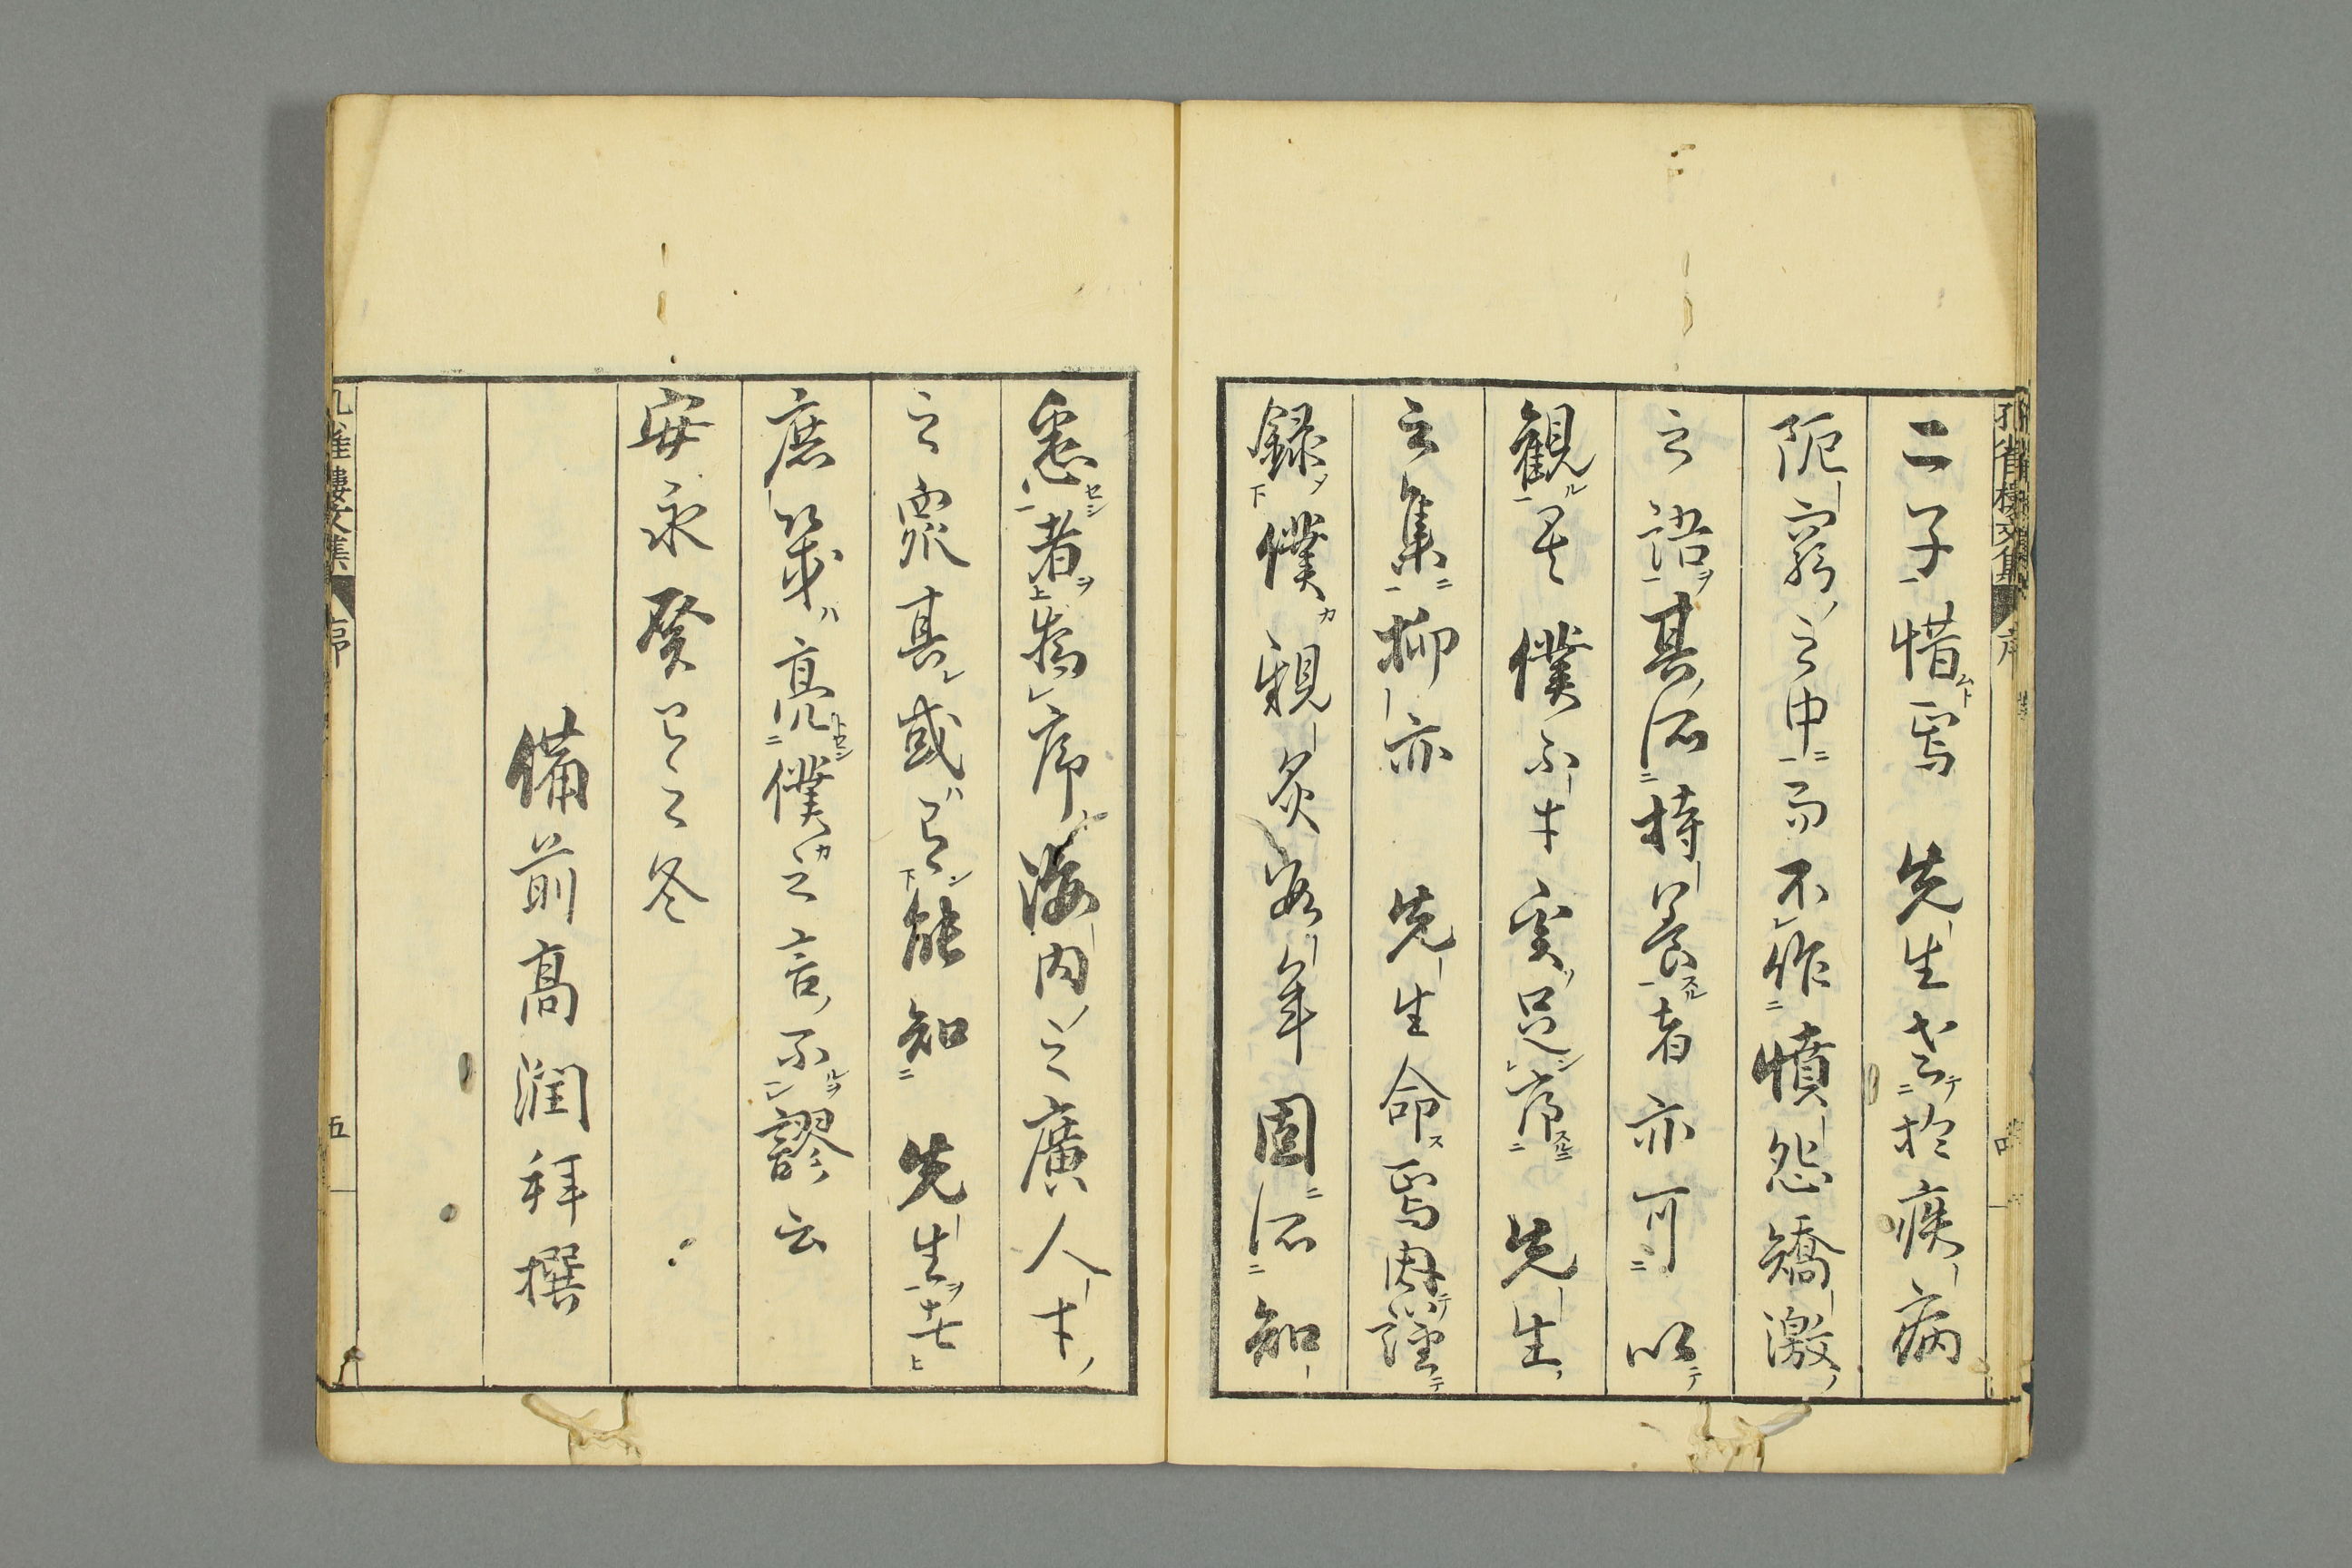 孔雀樓文集 序 四
二子惜焉 先生老於疾病
阨窮之中而不作憤怨矯激
之語其所持養者亦可以
観矣僕不才奚足序先生
之集抑亦 先生命焉因謹
録僕親炙年固所知
悉者序海内之廣人才
之衆其或能知 先生者
庶幾亮僕之言不謬云
安永癸巳之冬
備前高潤拜撰
孔雀樓文集 序 五